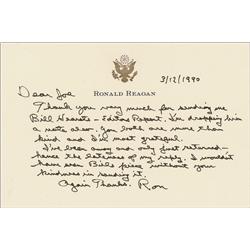 RONALD REAGAN
3/12/1990
Dear Joe
Thank you very much for sending me
Bill Hearsts - Editors Report. I'm dropping him
a note also. You both are more than
kind and I'm most grateful.
I've been away and only just returned -
hence the lateness of my reply. I wouldn't
have seen Bills piece without your
kindness in sending it.
Again Thanks. Ron